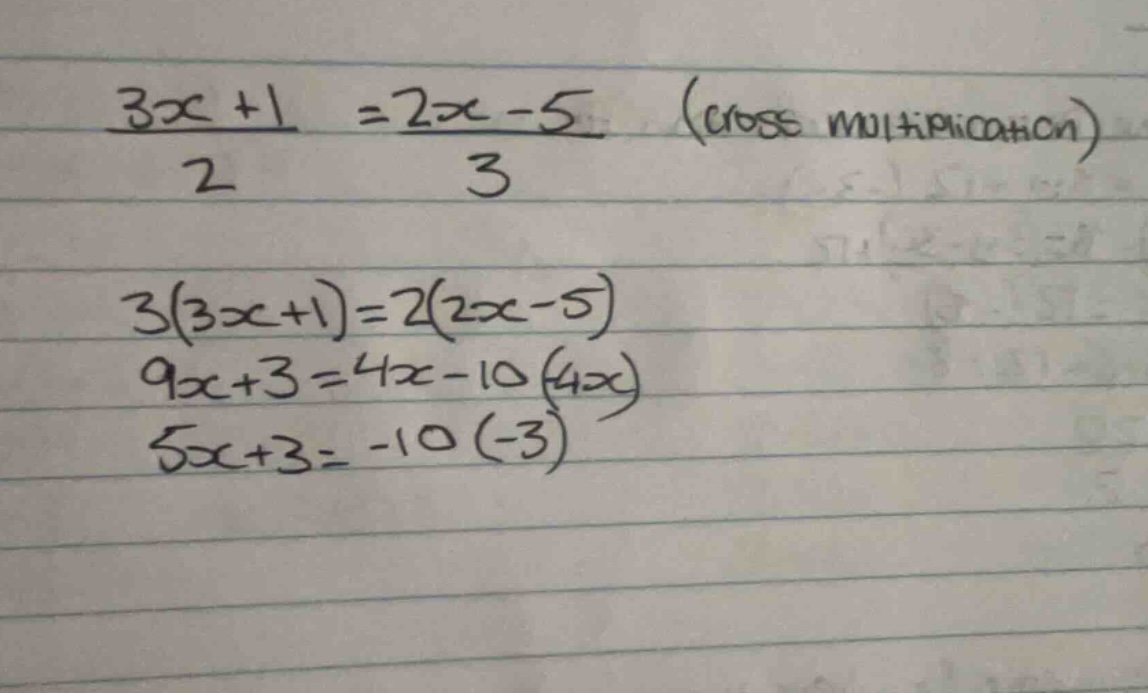 3x+1 = 2x-5 (cross multiplication)
2 3
3(3x+1)=2(2x-5)
9x+3=4x-10(-4x)
5x+3=-10(-3)